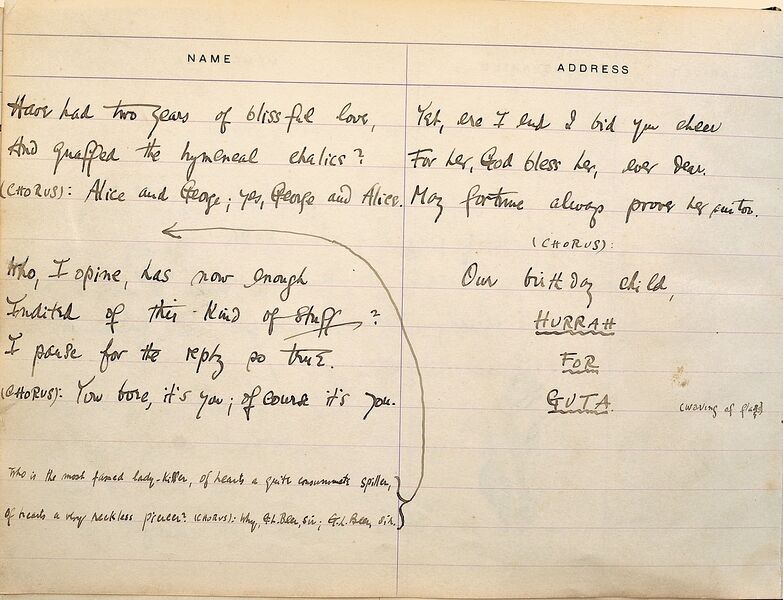 NAME
Have had two years of blissful love,
And quaffed the hymeneal chalice?
(CHORUS): Alice and George; yes, George and Alice.
Who, I opine, has now enough
Indited of this kind of stuff?
I pause for the reply so true.
(CHORUS): You bore, it's you; of course it's you.
Who is the most famed lady-killer, of hearts a quite consummate spiller,
of hearts a very reckless piercer? (CHORUS): Why, G.L. Beer, sir; G.L. Beer, sir.
ADDRESS
Yet, ere I end I bid you cheer
For her, God bless her, ever dear.
May fortune always prove her suitor.
(CHORUS):
Our birthday child,
HURRAH
FOR
GUTA.
(waving of flags)